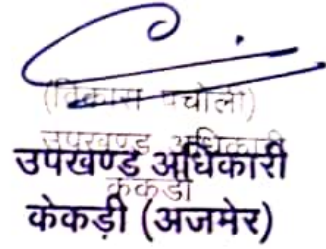 (विकास पंचोली)
उपखण्ड अधिकारी
केकड़ी
उपखण्ड अधिकारी
केकड़ी (अजमेर)